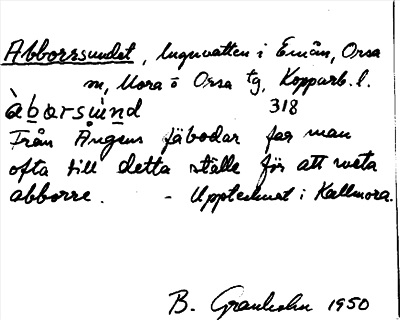 Abborrsundet, lugnvatten i Emån, Orsa
m, Mora o Orsa tg, Kopparb. l.
àbårsùnd 318
Från Ångens fäbodar far man
ofta till detta ställe för att meta
abborre. - Upptecknat i Kallmora.
B. Granholm 1950